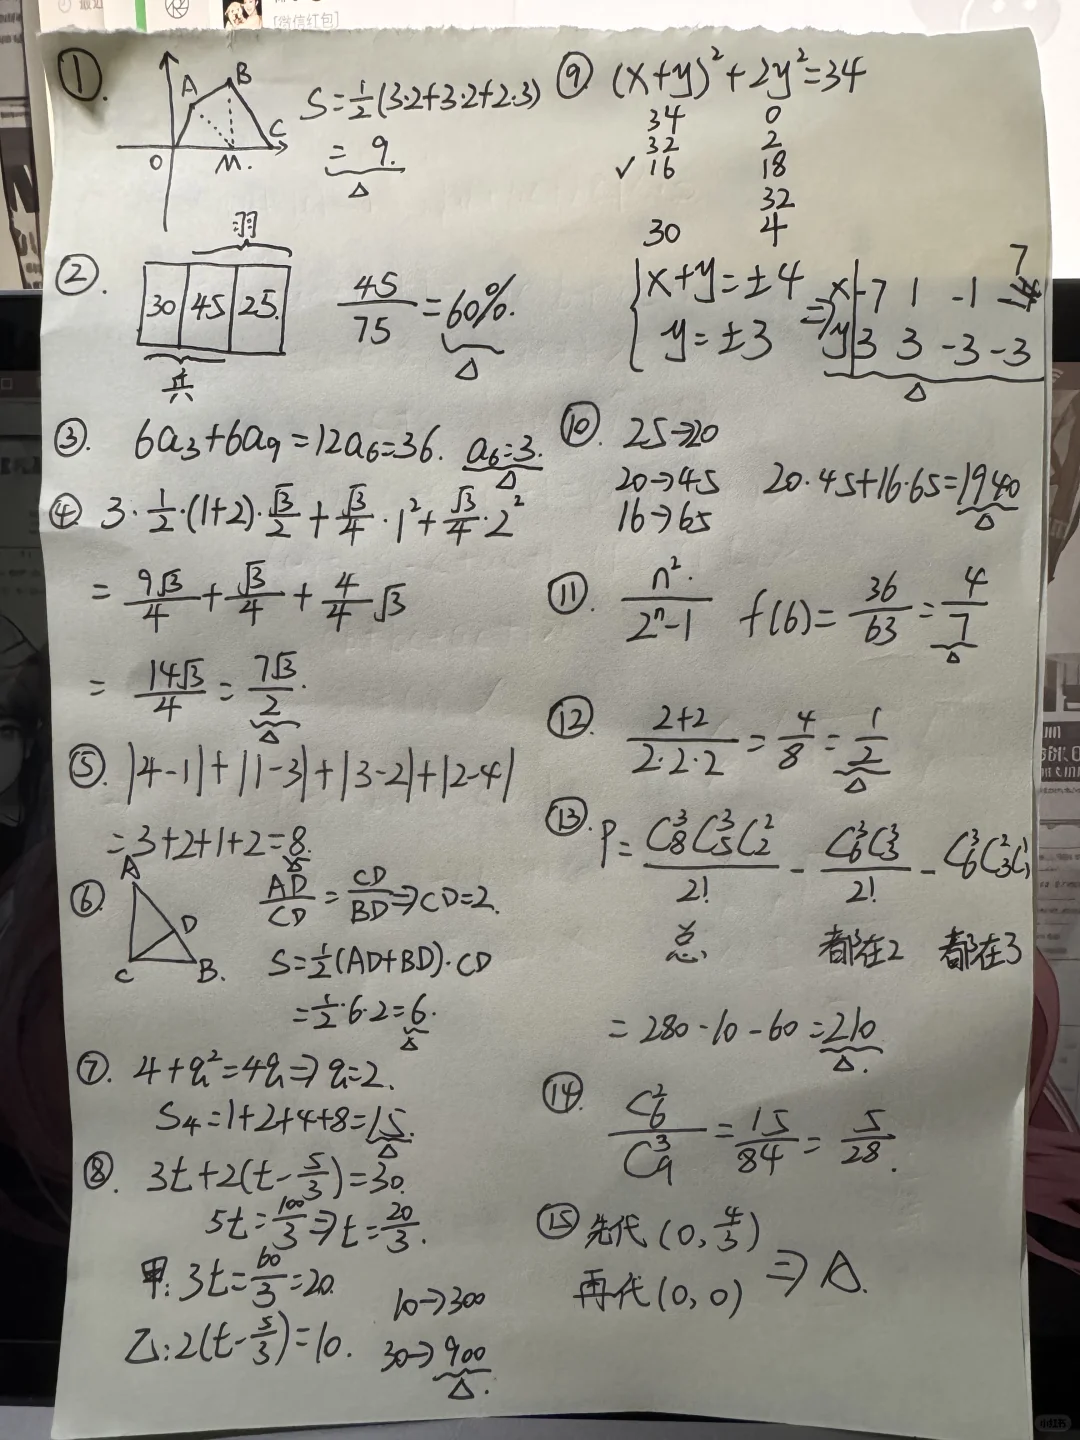 [微信红包]
①.
A
B
O
M.
C
S=½(3·2+3·2+2·3)
=9.
②.
羽
30 45 25.
乒
45/75=60%.
③. 6a₃+6a₉=12a₆=36. a₆=3.
④. 3·½·(1+2)·√3/2+√3/4·1²+√3/4·2²
=9√3/4+√3/4+4/4√3
=14√3/4=7√3/2.
⑤. |4-1|+|1-3|+|3-2|+|2-4|
=3+2+1+2=8.
⑥.
A
D
C
B.
AD/CD=CD/BD⇒CD=2.
S=½(AD+BD)·CD
=½·6·2=6.
⑦. 4+q²=4q⇒q=2.
S₄=1+2+4+8=15.
⑧. 3t+2(t-5/3)=30.
5t=100/3⇒t=20/3.
甲:3t=60/3=20.
乙:2(t-5/3)=10.
10→300
30→900
⑨. (x+y)²+2y²=34
34 0
32 2
✓16 18
32
30 4
{x+y=±4
y=±3
⇒
x -7 1 -1 7
y 3 3 -3 -3
⑩. 25→20
20→45
16→65
20·45+16·65=1940
⑪. n²/(2ⁿ-1) f(6)=36/63=4/7
⑫. (2+2)/(2·2·2)=4/8=1/2
⑬. P=C₈³C₅³C₂²/2!-C₆³C₃³/2!-C₆³C₃²C₁¹
总 都在2 都在3
=280-10-60=210.
⑭. C₆²/C₉³=15/84=5/28.
⑮ 先代(0,4/3)
再代(0,0)
⇒A.